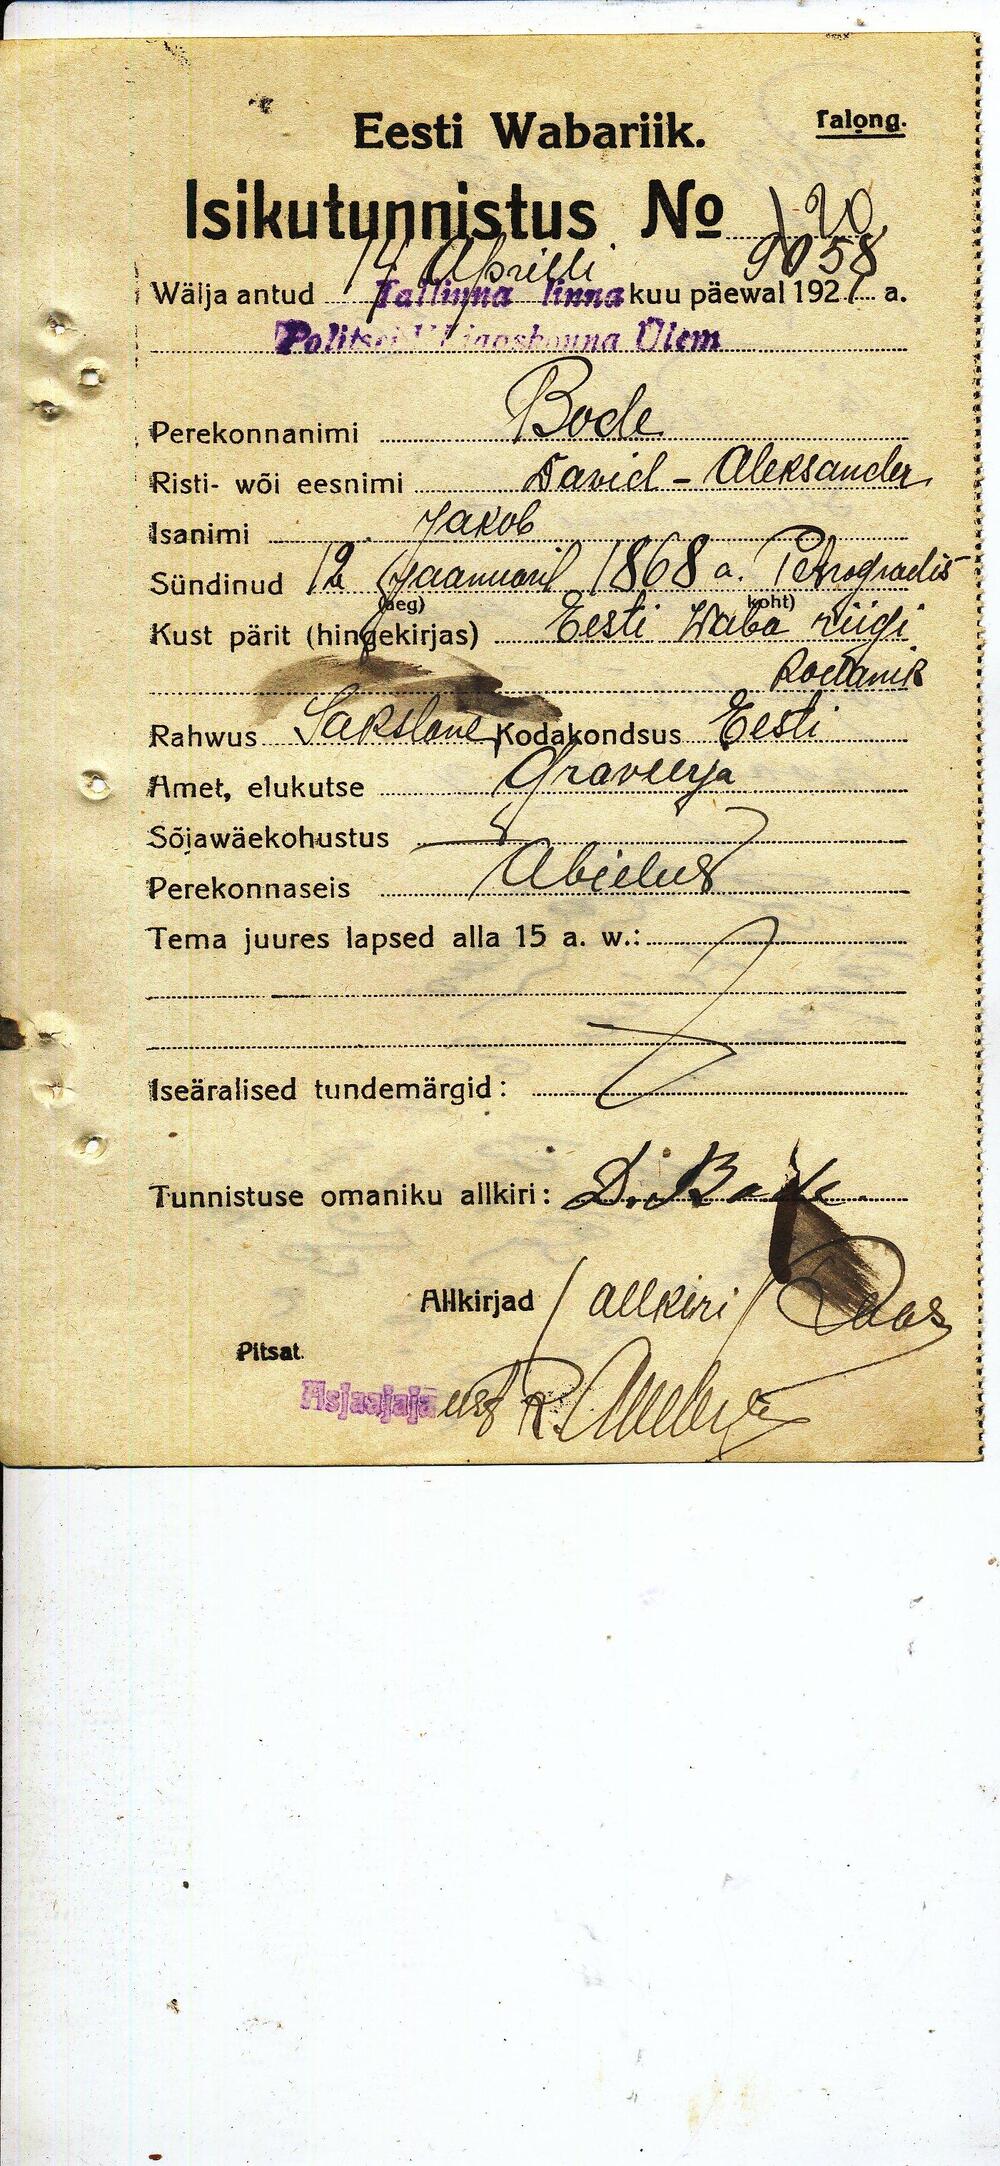 Talong.
Eesti Wabariik.
Isikutunnistus № 120
9058
Wälja antud 14 Aprilli kuu päewal 1921 a.
Tallinna linna
Politsei Jaoskonna Ülem
Perekonnanimi Bode
Risti- wõi eesnimi David - Aleksander
Isanimi Jakob
Sündinud 12 Jaanuaril 1868 a. Petrogradis
(aeg) koht)
Kust pärit (hingekirjas) Eesti Waba riigi
kodanik
Rahwus Sakslane Kodakondsus Eesti
Amet, elukutse Graveerija
Sõjawäekohustus
Perekonnaseis Abielus
Tema juures lapsed alla 15 a. w.:
Iseäralised tundemärgid:
Tunnistuse omaniku allkiri: D. Bode.
Allkirjad /allkiri/
Pitsat.
Asjaajaja eest R.